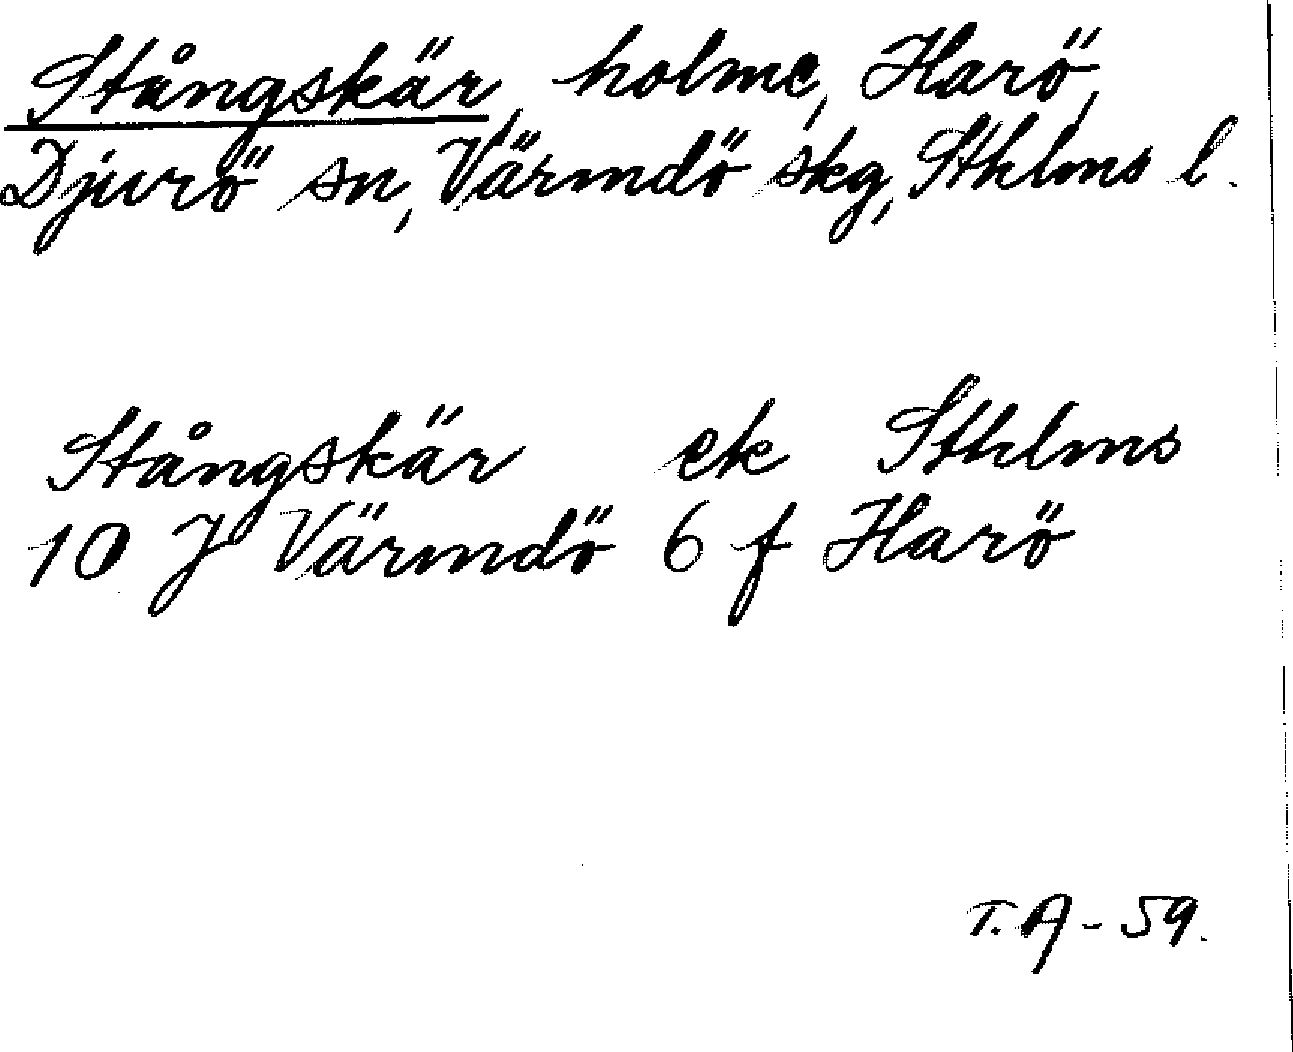 Stångskär, holme, Harö,
Djurö sn, Värmdö skg, Sthlms l.
Stångskär ek Sthlms
10 J Värmdö 6 f Harö
T.A-59.